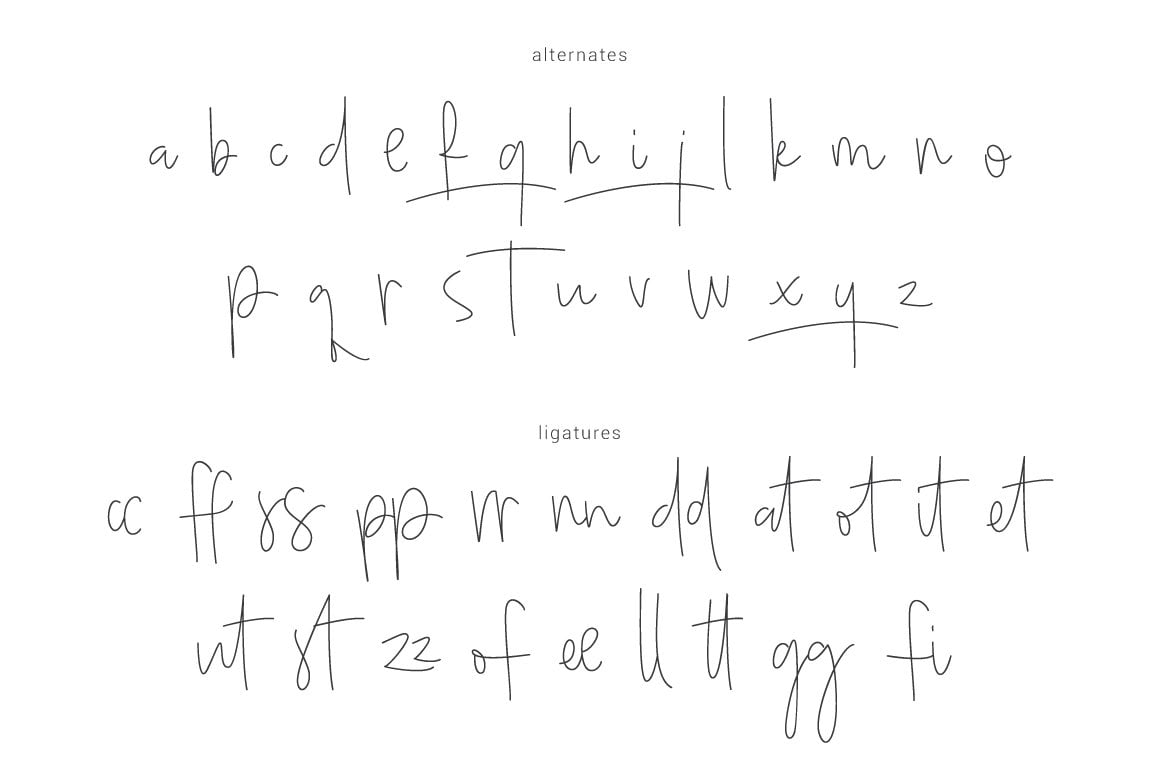 alternates
a b c d e f g h i j l k m n o
p q r s t u v w x y z
ligatures
cc ff ss pp rr nn dd at ot it et
nt st zz of ee ll tt gg fi